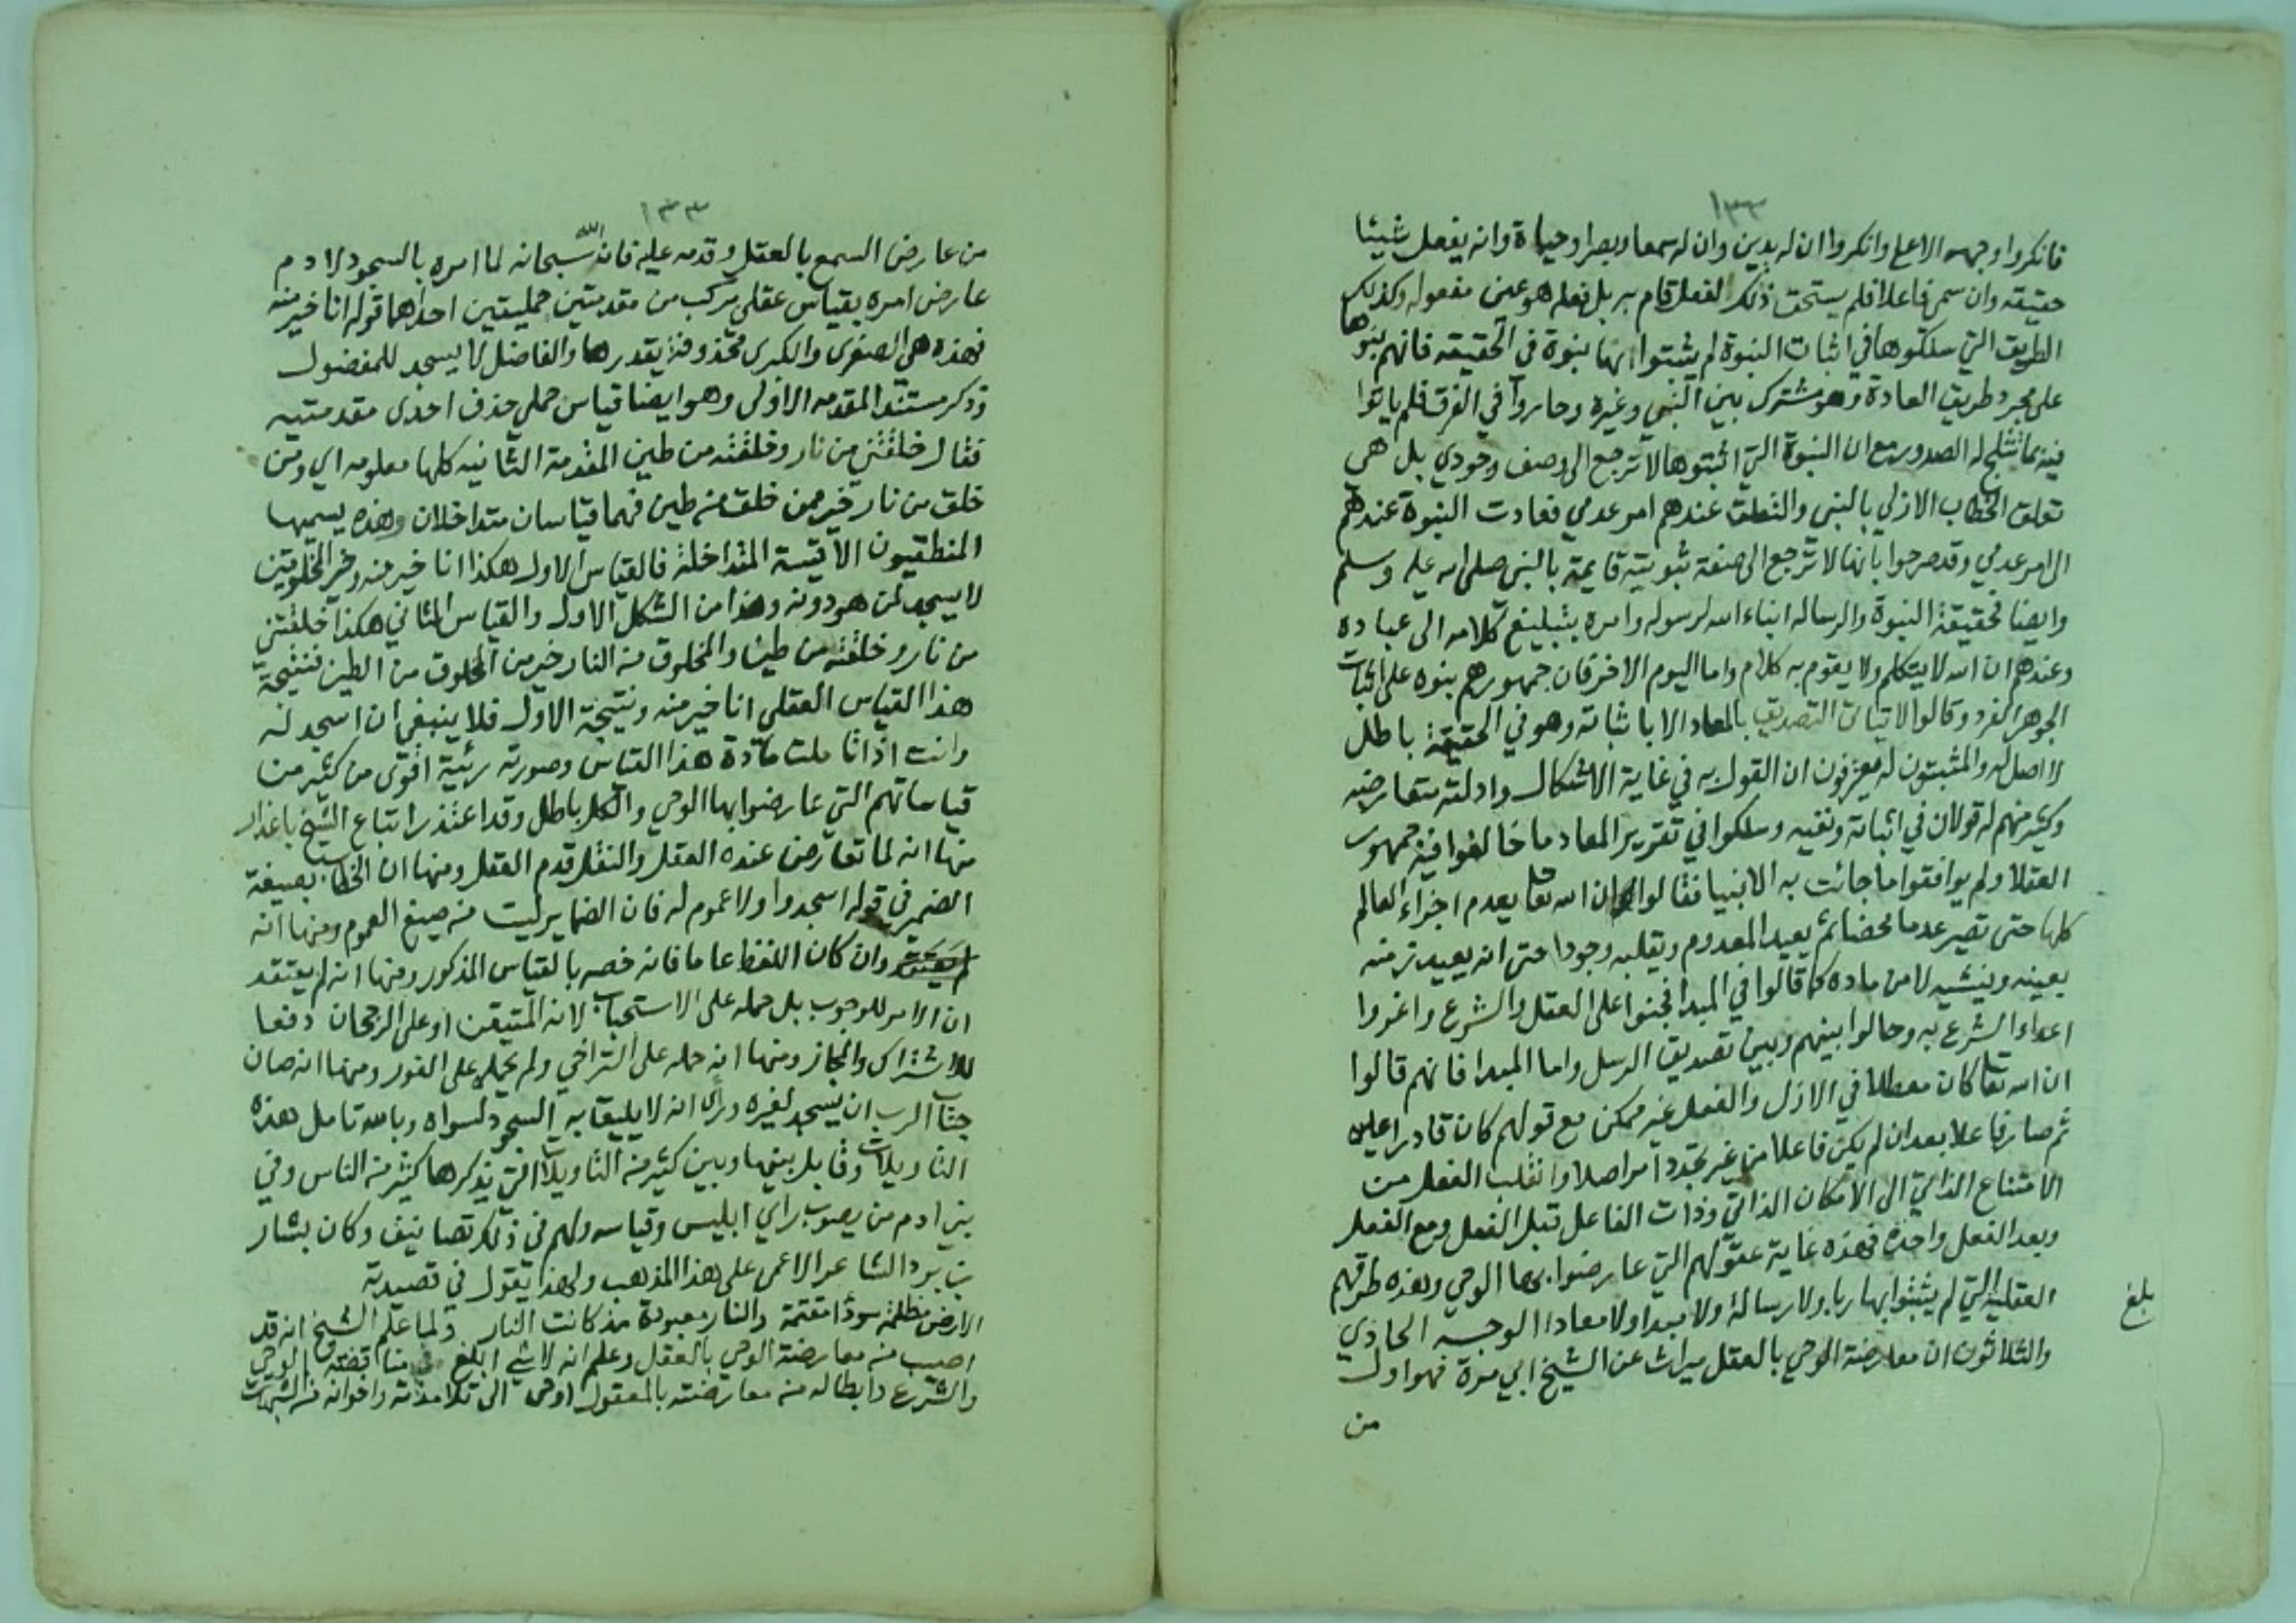 ١٣٣
فانكروا وجهه الاعلا وانكروا ان له يدين وان له سمعا وبصرا وحياة وانه يفعل شيئا
حقيقه وان سمى فاعلا فلم يستحق ذلك لفعل قام به بل فعله هو عين مفعوله وكذلك
الطريق التي سلكوها في اثبات النبوة لم يثبتوا بها نبوة في الحقيقه فانهم بنوها
على مجرد طريق العادة وهو مشترك بين النبي وغيره وحاروا في الفرق فلم ياتوا
فيه بما تثلج له الصدور مع ان النبوة التي اثبتوها لا ترجع الى وصف وجودي بل هي
تعلق الخطاب الازلي بالنبي والتعلق عندهم امر عدمي فعادت النبوة عندهم
الى امر عدمي وقد صرحوا بانها لا ترجع الى صفة ثبوتية قايمة بالنبي صلى الله عليه وسلم
وايضا فحقيقة النبوة والرساله انباء الله لرسوله وامره بتبليغ كلامه الى عباده
وعندهم ان الله لا يتكلم ولا يقوم به كلام واما اليوم الاخر فان جمهورهم بنوه على اثبات
الجوهر الفرد وقالوا لا يتاتى التصديق بالمعاد الا باثباته وهو في الحقيقة باطل
لا اصل له والمثبتون له يعترفون ان القول به في غاية الاشكال وادلته متعارضه
وكثير منهم له قولان في اثباته ونفيه وسلكوا في تقرير المعاد ما خالفوا فيه جمهور
العقلا ولم يوافقوا ما جائت به الانبيا فقالوا ان الله تعالى يعدم اجزاء العالم
كلها حتى تصير عدما محضا ثم يعيد المعدوم ويقلبه وجودا حتى انه يعيد زمنه
بعينه وينشيه لا من ماده كما قالوا في المبدا فجنوا على العقل والشرع واغروا
اعداء الشرع به وحالوا بينهم وبين تصديق الرسل واما المبدا فانهم قالوا
ان الله تعالى كان معطلا في الازل والفعل غير ممكن مع قولهم كان قادرا عليه
ثم صار فاعلا بعد ان لم يكن فاعلا من غير تجدد امر اصلا وانقلب الفعل من
الامتناع الذاتي الى الامكان الذاتي وذات الفاعل قبل الفعل ومع الفعل
وبعد الفعل واحدة فهذه غاية عقولهم التي عارضوا بها الوحي وهذه طرقهم
العقلية التي لم يثبتوا بها ربا ولا رسالة ولا مبدا ولا معادا الوجه الحادي
والثلاثون ان معارضة الوحي بالعقل ميراث عن الشيخ ابي مرة فهو اول
من
بلغ
١٣٣
من عارض السمع بالعقل وقدمه عليه فان الله سبحانه لما امره بالسجود لادم
عارض امره بقياس عقلي مركب من مقدمتين حمليتين احداهما قوله انا خير منه
فهذه هي الصغرى والكبرى محذوفة يقدرها والفاضل لا يسجد للمفضول
وذكر مستند المقدمه الاولى وهو ايضا قياس حملي حذف احدى مقدمتيه
فقال خلقتني من نار وخلقته من طين المقدمة الثانيه كلها معلومه اي ومن
خلق من نار خير ممن خلق من طين فهما قياسان متداخلان وهذه يسميها
المنطقيون الاقيسة المتداخلة فالقياس الاول هكذا انا خير منه وخير المخلوقين
لا يسجد لمن هو دونه وهذا من الشكل الاول والقياس الثاني هكذا خلقتني
من نار وخلقته من طين والمخلوق من النار خير من المخلوق من الطين فنتيجة
هذا القياس العقلي انا خير منه ونتيجة الاول فلا ينبغي ان اسجد له
وانت اذا تاملت مادة هذا القياس وصورته رئية اقوى من كثير من
قياساتهم التي عارضوا بها الوحي والكل باطل وقد اعتذر اتباع الشيخ باعذار
منها انه لما تعارض عنده العقل والنقل قدم العقل ومنها ان الخطاب بصيغة
الضمير في قوله اسجدوا ولا عموم له فان الضماير ليت من صيغ العموم ومنها انه
وان كان اللفظ عاما فانه خصه بالقياس المذكور ومنها انه لم يعتقد
ان الامر للوجوب بل حمله على الاستحباب لانه المتيقن او على الرجحان دفعا
للاشتراك والمجاز ومنها انه حمله على التراخي ولم يحمله على الفور ومنها انه صان
جناب الرب ان يسجد لغيره وراى انه لا يليق به السجود لسواه وبالله تامل هذه
التاويلات وقابل بينها وبين كثير من التاويلات التي يذكرها كثير من الناس وفي
بني ادم من يصوب راي ابليس وقياسه ولهم في ذلك تصانيف وكان بشار
بن برد الشاعر الاعمى على هذا المذهب ولهذا يقول في قصيدته
الارض مظلمة سودا مقتمة والنار معبودة مذ كانت النار ولما علم الشيخ انه قد
اصيب من معارضة الوحي بالعقل وعلم انه لا شي ابلغ في مناقضة الوحي
والشرع وابطاله من معارضته بالمعقول اوحى الى تلامذته واخوانه من الشبهات